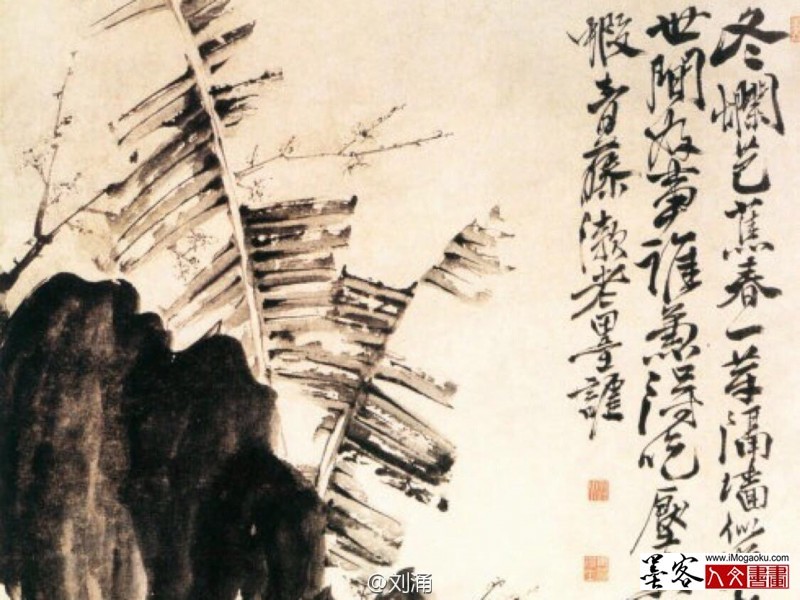 冬爛芭蕉春一芽隔墙似
世間好事誰兼得吃厭
蝦青藤漱老墨謔
@刘涌
墨客
www.iMogaoku.com
人文書畫